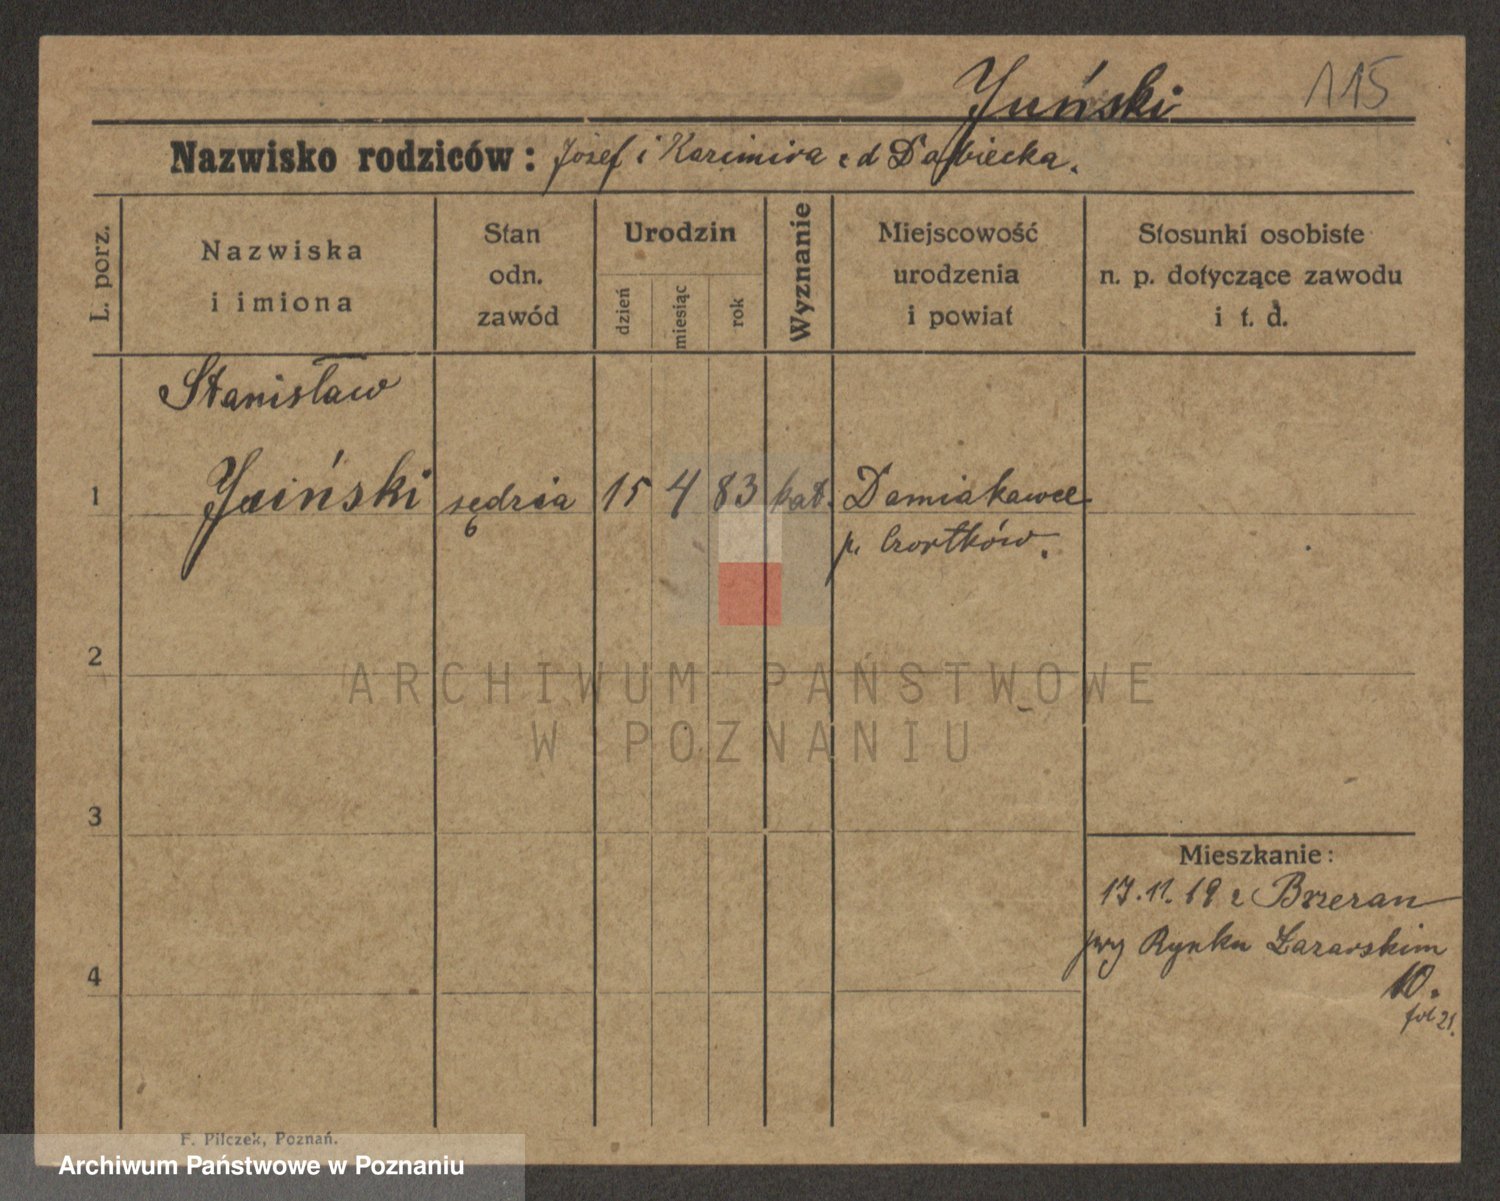 Juński 115
Nazwisko rodziców: Józef i Kazimira z d Dąbiecka.
L. porz.
Nazwiska
i imiona
Stan
odn.
zawód
Urodzin
dzień
miesiąc
rok
Wyznanie
Miejscowość
urodzenia
i powiat
Stosunki osobiste
n. p. dotyczące zawodu
i t. d.
Stanisław
1 Juiński sędzia 15 4 83 kat.
p. Czortków.
2
ARCHIWUM PAŃSTWOWE
W POZNANIU
3
Mieszkanie:
17.11.19 z Brzeran
przy Rynku Łazarskim
10.
4
F. Pilczek, Poznań.
Archiwum Państwowe w Poznaniu